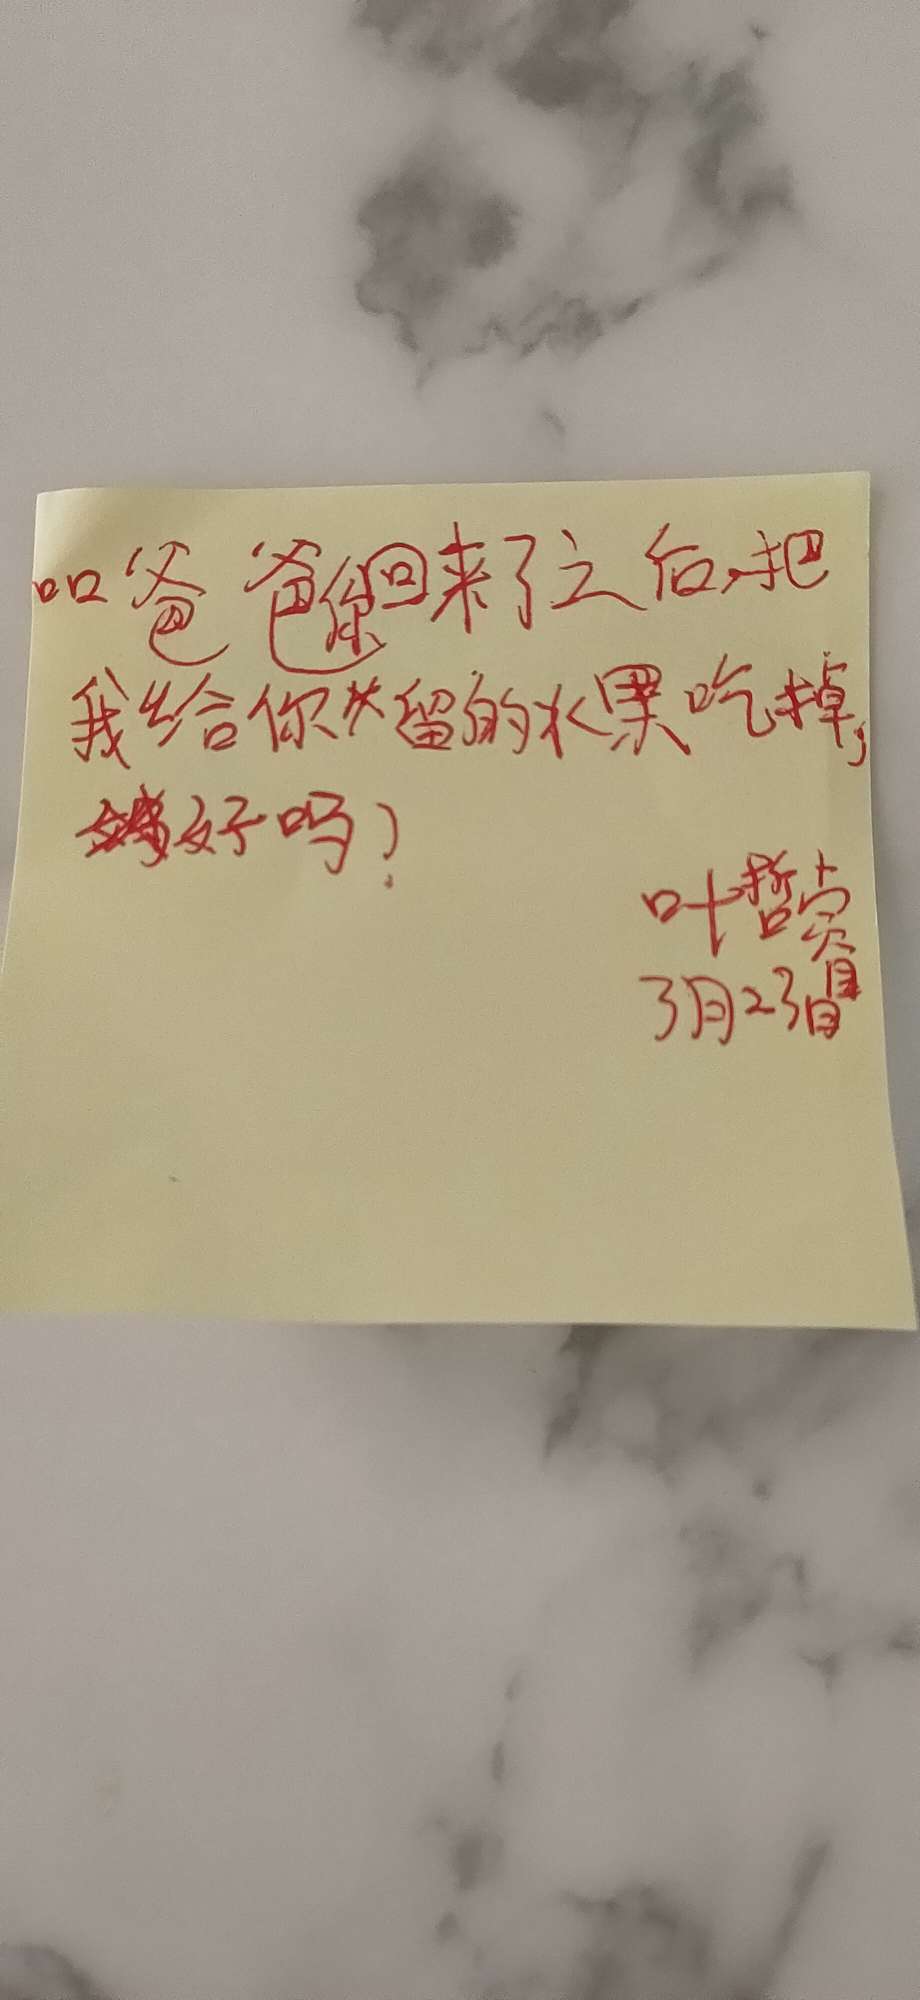 口口爸爸你回来了之后,把
我给你留的水果吃掉,
好吗?
叶哲
3月23日